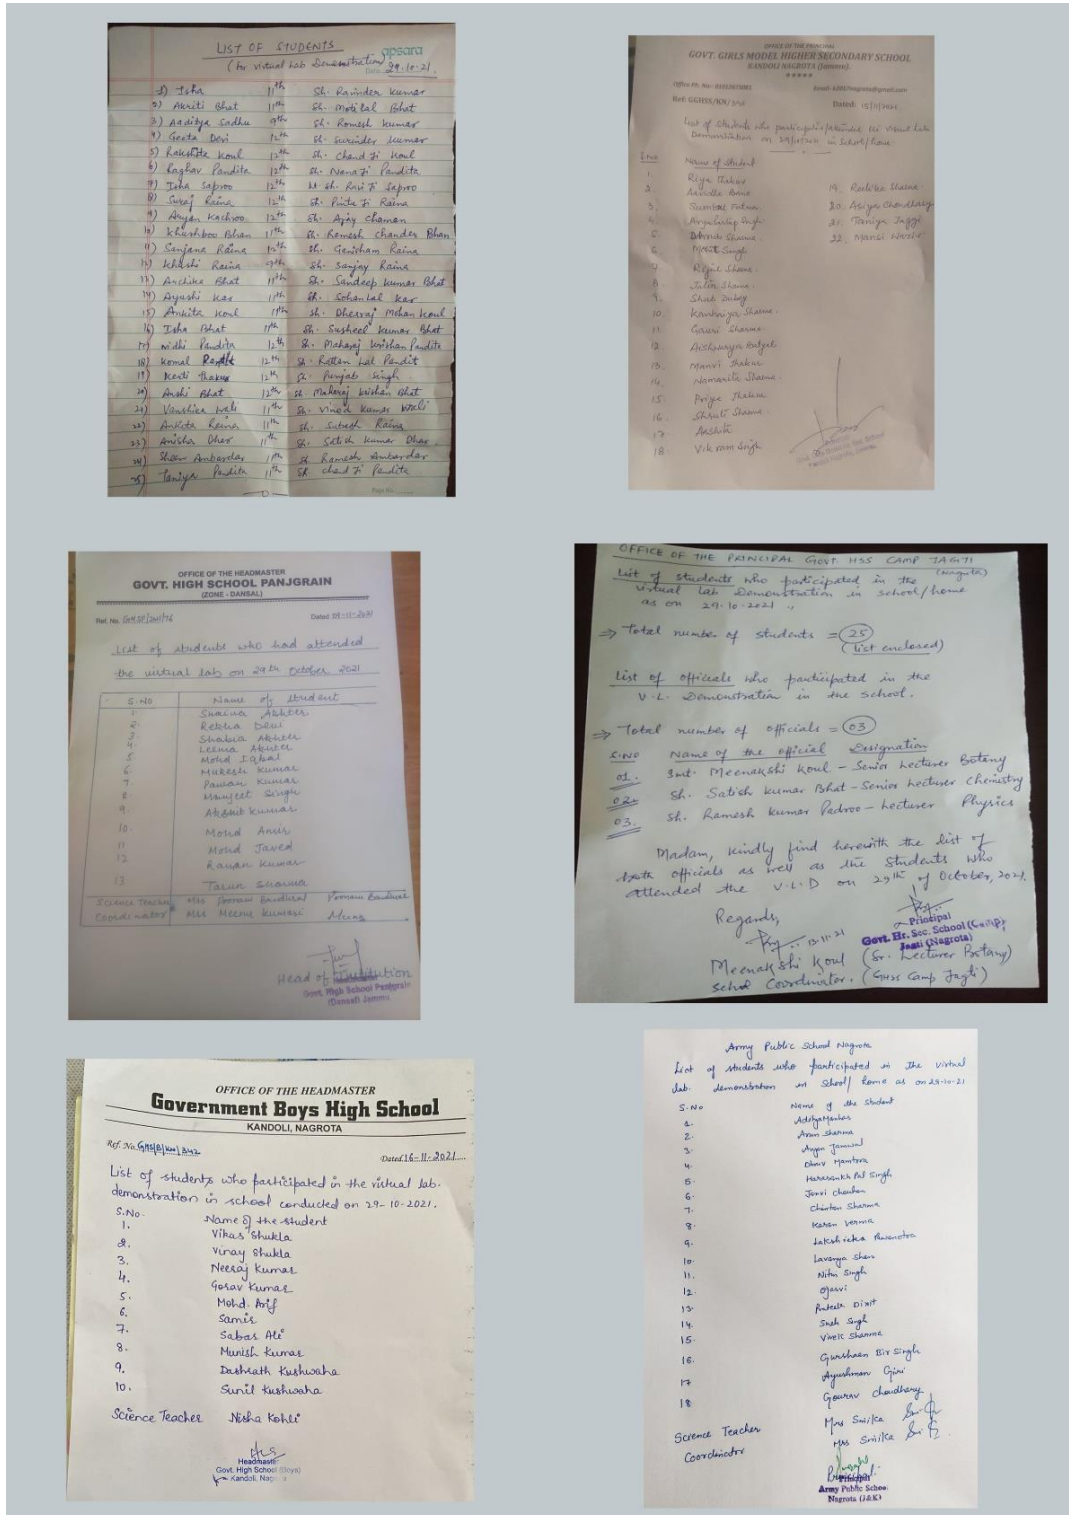 LIST OF STUDENTS
apsara
(for Virtual Lab Demonstration) 29.10.21
1) Isha 11th Sh. Ravinder Kumar
2) Akriti Bhat 11th Sh. Motilal Bhat
3) Aaditya Sadhu 9th Sh. Romesh Kumar
4) Geeta Devi 12th Sh. Surinder Kumar
5) Rakshita Koul 12th Sh. Chand Ji Koul
6) Raghav Pandita 12th Sh. Nana Ji Pandita
7) Isha Saproo 12th Lt Sh. Ravi Ji Saproo
8) Suraj Raina 12th Sh. Pintu Ji Raina
9) Aryan Kachroo 12th Sh. Ajay Chaman
10) Khushboo Bhan 11th Sh. Ramesh Chander Bhan
11) Sanjana Raina 12th Sh. Gansham Raina
12) Khushi Raina 9th Sh. Sanjay Raina
13) Archika Bhat 11th Sh. Sandeep Kumar Bhat
14) Ayushi Kar 11th Sh. Sohanlal Kar
15) Ankita Koul 11th Sh. Dheeraj Mohan Koul
16) Isha Bhat 11th Sh. Susheel Kumar Bhat
17) Nidhi Pandita 12th Sh. Maharaj Krishan Pandita
18) Komal 12th Sh. Rattan Lal Pandit
19) Kriti Thakur 12th Sh. Punjab Singh
20) Anshi Bhat 12th Sh. Maharaj Krishan Bhat
21) Vanshica Wali 11th Sh. Vinod Kumar Wali
22) Ankita Raina 11th Sh. Sutresh Raina
23) Anisha Dhar 11th Sh. Satish Kumar Dhar
24) Sheen Ambardar 11th Sh. Ramesh Ambardar
25) Taniya Pandita 11th Sh. Chand Ji Pandita
OFFICE OF THE PRINCIPAL
GOVT. GIRLS MODEL HIGHER SECONDARY SCHOOL
KANDOLI NAGROTA (Jammu)
*****
Office Ph. No:-
Ref: GGHSS/KN/ Dated: 15/11/2021
List of Students who participated/attended the virtual Lab
Demonstration on 29/10/2021 in School/home
S.No Name of Student
1. Riya Thakur
2. Aarushi
3. Sumbal Fatima
4.
5. Sharma
6. Mohit Singh
7. Sharma
8. Sharma
9. Dubey
10. Sharma
11. Gauri Sharma
12. Aishwarya
13. Manvi Thakur
14. Namanita Sharma
15. Priya Thakur
16. Shruti Sharma
17. Akshita
18. Vikram Singh
19. Radhika Sharma
20. Asiya Choudhary
21. Taniya Jaggi
22. Mansi
OFFICE OF THE HEADMASTER
GOVT. HIGH SCHOOL PANJGRAIN
(ZONE - DANSAL)
Ref. No. Dated 09-11-2021
List of students who had attended
the virtual lab on 29th October 2021
S.NO Name of student
1 Shaina Akhter
2 Rekha Devi
3 Shabia Akhter
4 Leema Akhter
5 Mohd Iqbal
6 Mukesh Kumar
7 Pawan Kumar
8 Manjeet Singh
9 Akshit Kumar
10. Mohd Amir
11 Mohd Javed
12 Rawan Kumar
13 Tarun Sharma
Science Teacher Mrs Poonam Bandhral Poonam Bandhral
Coordinator Mrs Meenu Kumari Meenu
Head of Institution
Govt. High School Panjgrain
(Dansal) Jammu
OFFICE OF THE PRINCIPAL GOVT. HSS CAMP JAGTI
(Nagrota)
List of students who participated in the
virtual lab Demonstration in school/home
as on 29.10.2021
⇒ Total number of students = 25
(list enclosed)
List of officials who participated in the
V.L. Demonstration in the school.
⇒ Total number of officials = 03
S.NO Name of the official Designation
01. Smt. Meenakshi Koul - Senior Lecturer Botany
02. Sh. Satish Kumar Bhat - Senior Lecturer Chemistry
03. Sh. Ramesh Kumar Padroo - Lecturer Physics
Madam, kindly find herewith the list of
both officials as well as the Students who
attended the V.L.D on 29th of October, 2021.
Regards,
13-11-21
Principal
Govt. Hr. Sec. School (Camp)
Jagti (Nagrota)
Meenakshi Koul (Sr. Lecturer Botany)
School Coordinator. (GHSS Camp Jagti)
OFFICE OF THE HEADMASTER
Government Boys High School
KANDOLI, NAGROTA
Ref. No. GHS/B/KN/342
Dated 16-11-2021
List of students who participated in the virtual lab.
demonstration in school conducted on 29-10-2021.
S.No. Name of the student
1. Vikas Shukla
2. Vinay Shukla
3. Neeraj Kumar
4. Gorav Kumar
5. Mohd. Arif
6. Samir
7. Sabar Ali
8. Munish Kumar
9. Dashrath Kushwaha
10. Sunil Kushwaha
Science Teacher Nisha Kohli
Headmaster
Govt. High School (Boys)
Kandoli, Nagrota
Army Public School Nagrota
List of students who participated in the virtual
lab. demonstration in School/home as on 29-10-21
S.No Name of the Student
1. Aditya Manhas
2. Arun Sharma
3. Aryan Jamwal
4. Dhruv Mamtora
5. Harasankh Pal Singh
6. Janvi Chauhan
7. Chintan Sharma
8. Karan Verma
9. Lakshieka Pawanotra
10. Lavanya Shan
11. Nitin Singh
12. Ojasvi
13. Prateek Dixit
14. Sneh Singh
15. Vivek Sharma
16. Gurshaan Bir Singh
17 Ayushman Giri
18 Gourav Choudhary
Science Teacher Mrs Srivika
Coordinator Mrs Srivika
Principal
Principal
Army Public School
Nagrota (J&K)